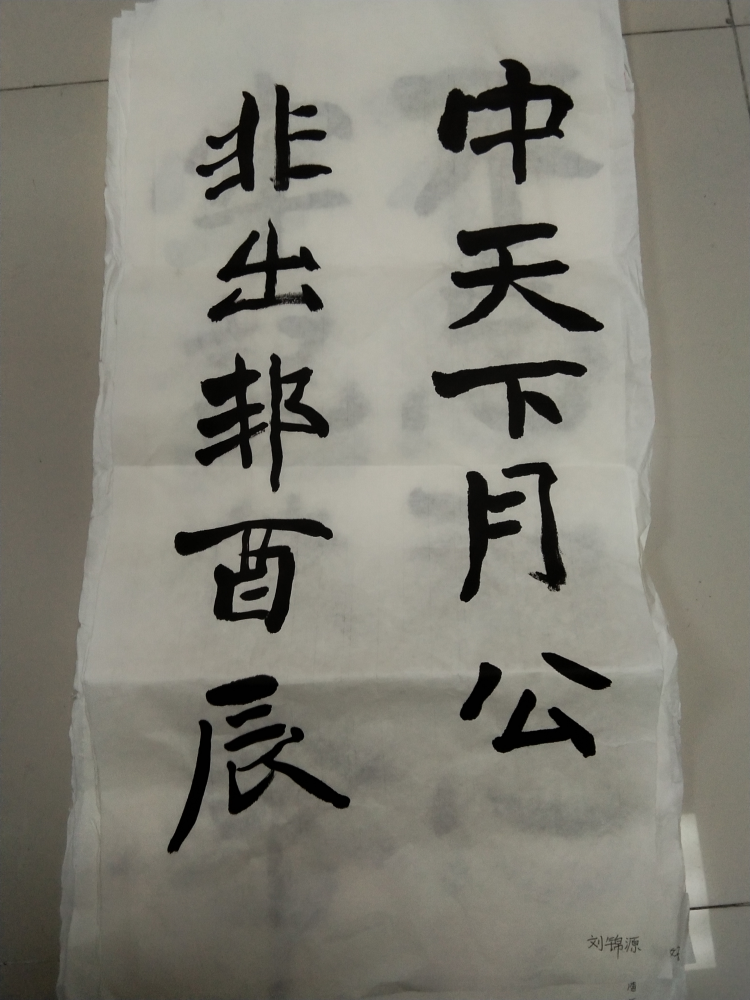 中天下月公
非出邦酉辰
刘锦源